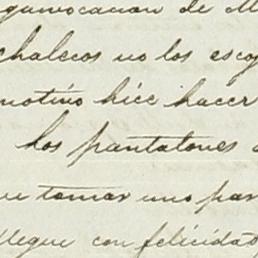 equivocacion de M
chalecos no los escog
motivo hice hacer
Los pantalones
ue tomar uno par
llegue con felicidad